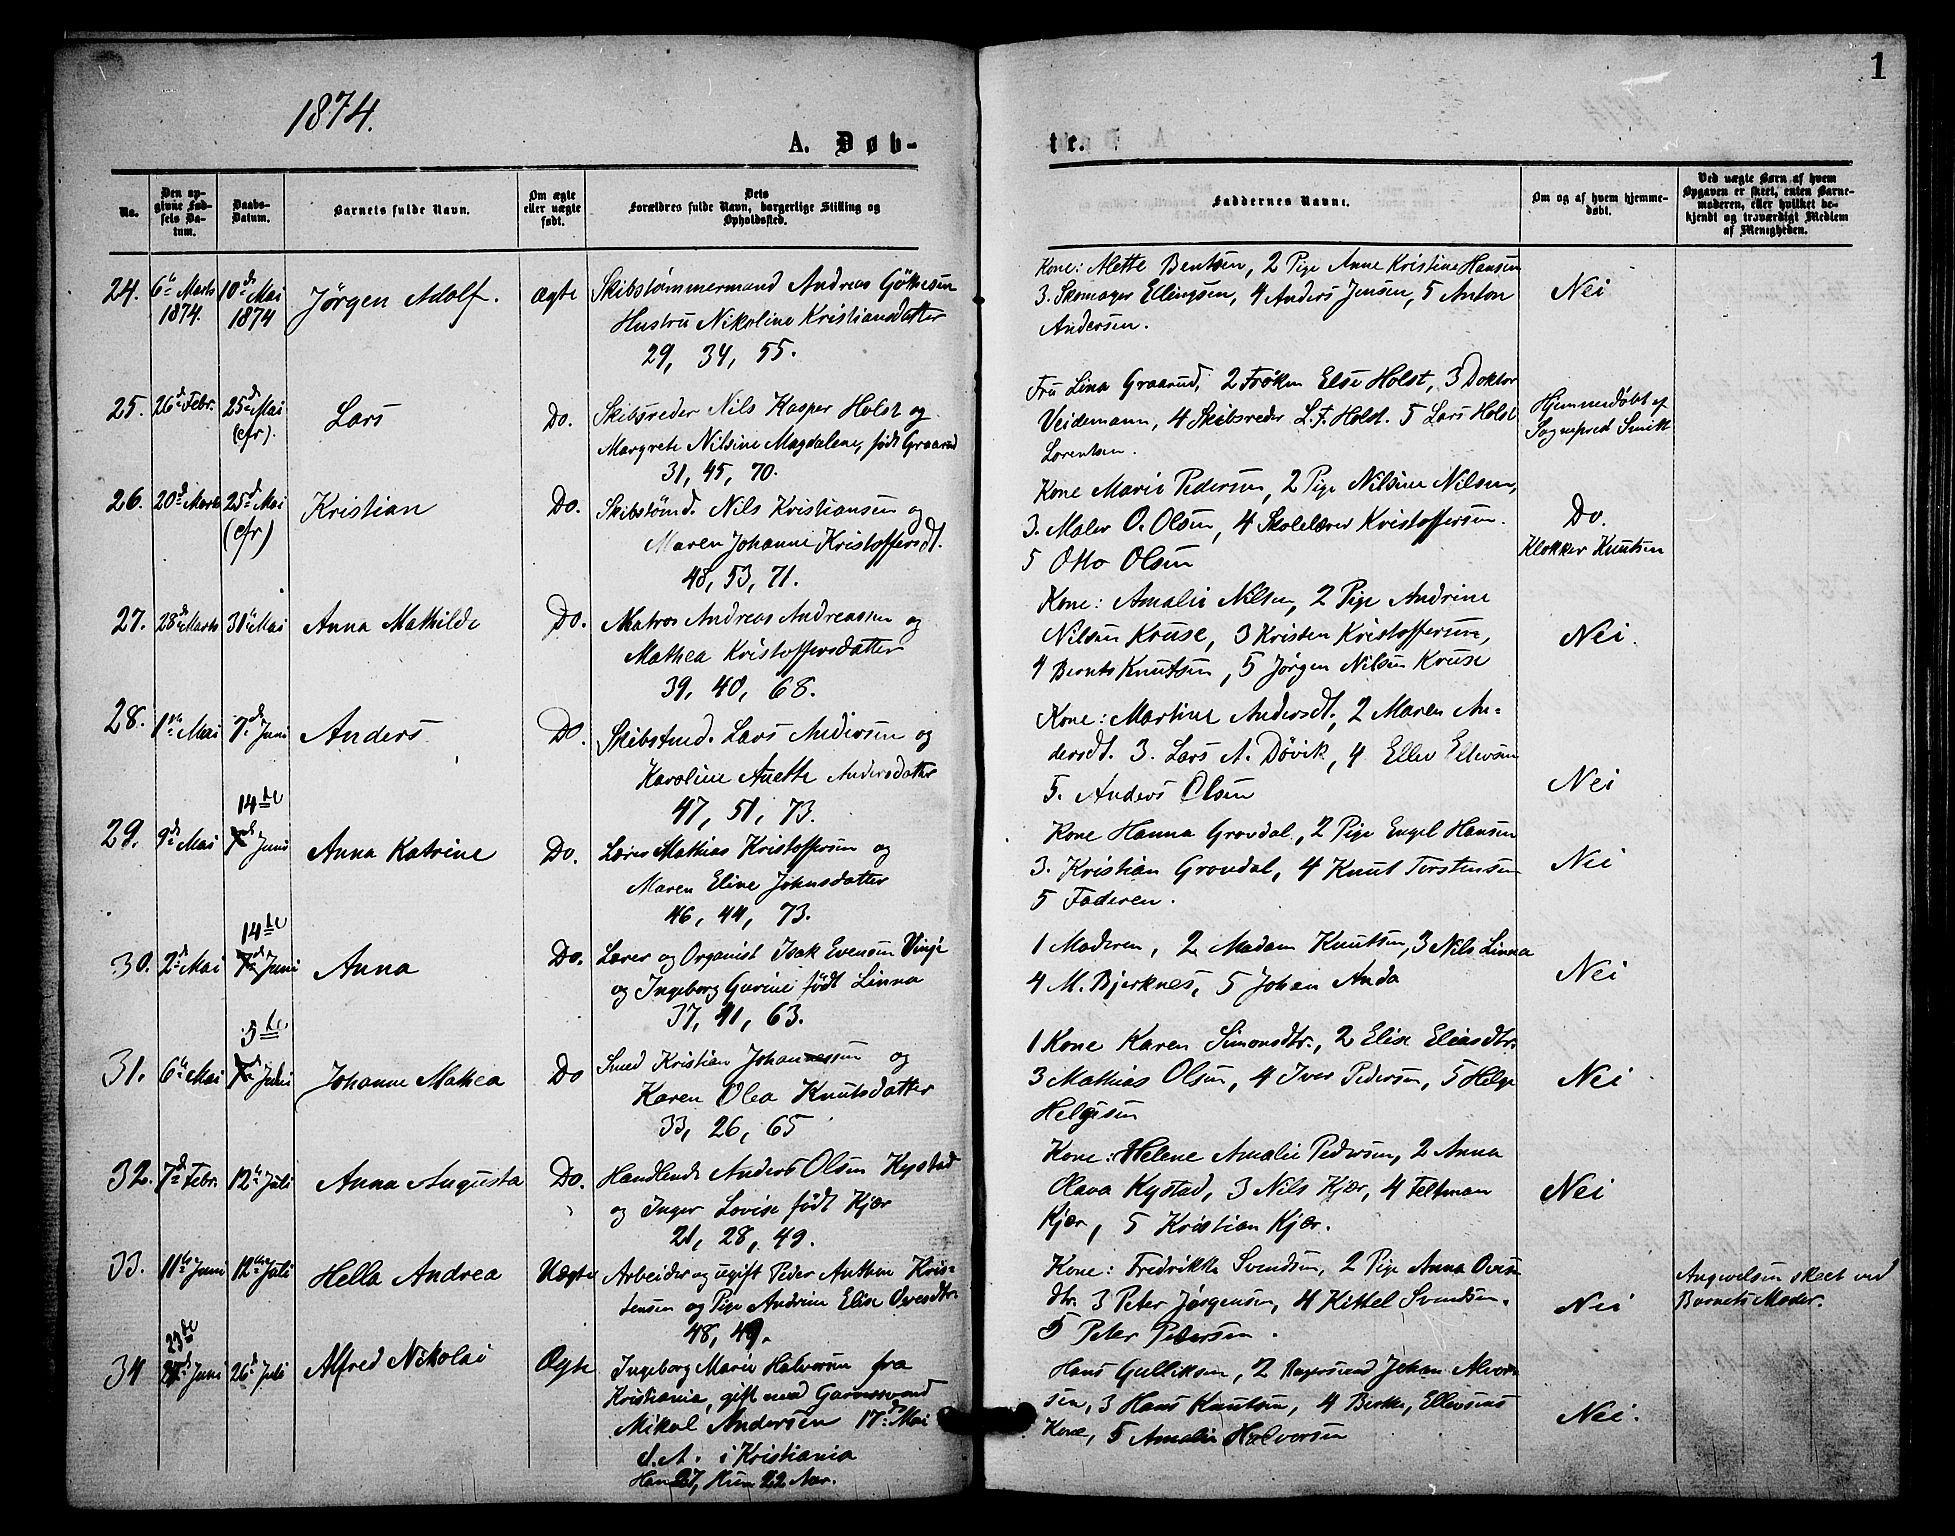 1
1874.
A. Døb-
te.
No.
Den op-
givne Fød-
sels Da-
tum.
Daabs-
Datum.
Barnets fulde Navn.
Om ægte
eller uægte
født.
Dets
Forældres fulde Navn, borgerlige Stilling og
Opholdssted.
Faddernes Navne.
Om og af hvem hjemme-
døbt.
Ved uægte Børn af hvem
Opgaven er skeet, enten Barne-
moderen, eller hvilket be-
kjendt og troværdigt Medlem
af Menigheden.
24.
6te Marts
1874.
10de Mai
1874
Jörgen Adolf.
ægte
Skibstømmermand Andreas Göthesen
Hustru Nikoline Kristiansdatter
29, 34, 55.
Kone: Mette Bentsen, 2 Pige Anne Kristine Hansen
3. Skomager Ellingsen, 4 Anders Jensen, 5 Anton
Andersen.
Nei
25.
26de Febr.
25de Mai
(cfr).
Lars
Do.
Skibsreder Nils Kasper Holst og
Margrete Nilsine Magdalene, født Graarud
31, 45, 70.
Fru Lina Graarud, 2 Frøken Else Holst, 3 Doktor
Veidemann, 4 Skibsreder L. F. Holst. 5 Lars Holst
Lorentsen.
Hjemmedøbt af
Sognepred Smitt
26.
20de Marts
25de Mai
(cfr)
Kristian
Do.
Skibstømd. Nils Kristiansen og
Maren Johanne Kristoffersdt.
48, 53, 71.
Kone Marie Pedersen, 2 Pige Nilsine Nilsen,
3. Maler O. Olsen, 4 Skolelærer Kristoffersen.
5 Otto Olsen
Do.
Klokker Knutsen
27.
28de Marts
31te Mai
Anna Mathilde
Do.
Matros Andreas Andreassen og
Mathea Kristoffersdatter
39, 40, 68.
Kone: Amalie Nilsen, 2 Pige Andrine
Nilsen Kruse, 3 Kristen Kristoffersen,
4 Bernts Knutsen, 5 Jørgen Nilsen Kruse
Nei.
28.
1ste Mai
7de Juni
Anders
Do.
Skibstmd. Lars Andersen og
Karoline Anette Andersdatter
47, 51, 73.
Kone: Martine Andersdt, 2 Maren An-
dersdt. 3. Lars A. Døvik, 4 Ellev Ellevsen
5. Anders Olsen
Nei
29.
9de Mai
14de
7de Juni
Anna Katrine
Do.
Lærer Mathias Kristoffersen og
Maren Eline Johnsdatter
46, 44, 73.
Kone Hanna Grovdal, 2 Pige Engel Hansen
3. Kristian Grovdal, 4 Knut Torstensen
5 Faderen.
Nei
30.
2de Mai
14de
7de Juni
Anna
Do.
Lærer og Organist Isak Evensen Vinje
og Ingeborg Gurine født Linna
37, 41, 63.
1 Moderen, 2 Madam Knutsen, 3 Nils Linna
4 M. Bjerknes, 5 Johan Anda
Nei
31.
6te Mai
5te
7de Juli
Johanne Mathea
Do
Smed Kristian Johannessen og
Karen Olea Knutsdatter
33, 26, 65
1 Kone Karen Simonsdtr., 2 Elise Eliasdtr.
3 Mathias Olsen, 4 Iver Pedersen, 5 Helge
Helgesen
Nei
32.
7de Febr.
12te Juli
Anna Augusta
Do.
Handlende Anders Olsen Kystad
og Inger Lovise født Kjær
21, 28, 49.
Kone: Helene Amalie Pedersen, 2 Anna
Olava Kystad, 3 Nils Kjær, 4 Feltman
Kjær, 5 Kristian Kjær.
Nei
33.
11te Juni
12te Juli
Hella Andrea
Uægte
Arbeider og ugift Peder Anthon Kris-
tensen og Pige Andrine Elise Ovesdtr.
48, 49.
Kone: Fredrikke Svendsen, 2 Pige Anna Oves
dtr. 3 Peter Jørgensen, 4 Kittel Svendsen.
5 Peter Pedersen.
Nei
Angivelsen skeet ved
Barnets Moder.
34
23de
Juni
26de Juli
Alfred Nikolai
Ægte
Ingeborg Marie Halvorsen fra
Kristiania, gift med
Mikal Andersen 17de Mai
d. A. i Kristiania
Han 27, Hun 22 Aar.
Hans Gulliksen, 2 Johan Alvor-
sen, 3 Hans Knutsen, 4 Berthe, Ellevsens
Kone, 5 Amalie Halvorsen
Nei.